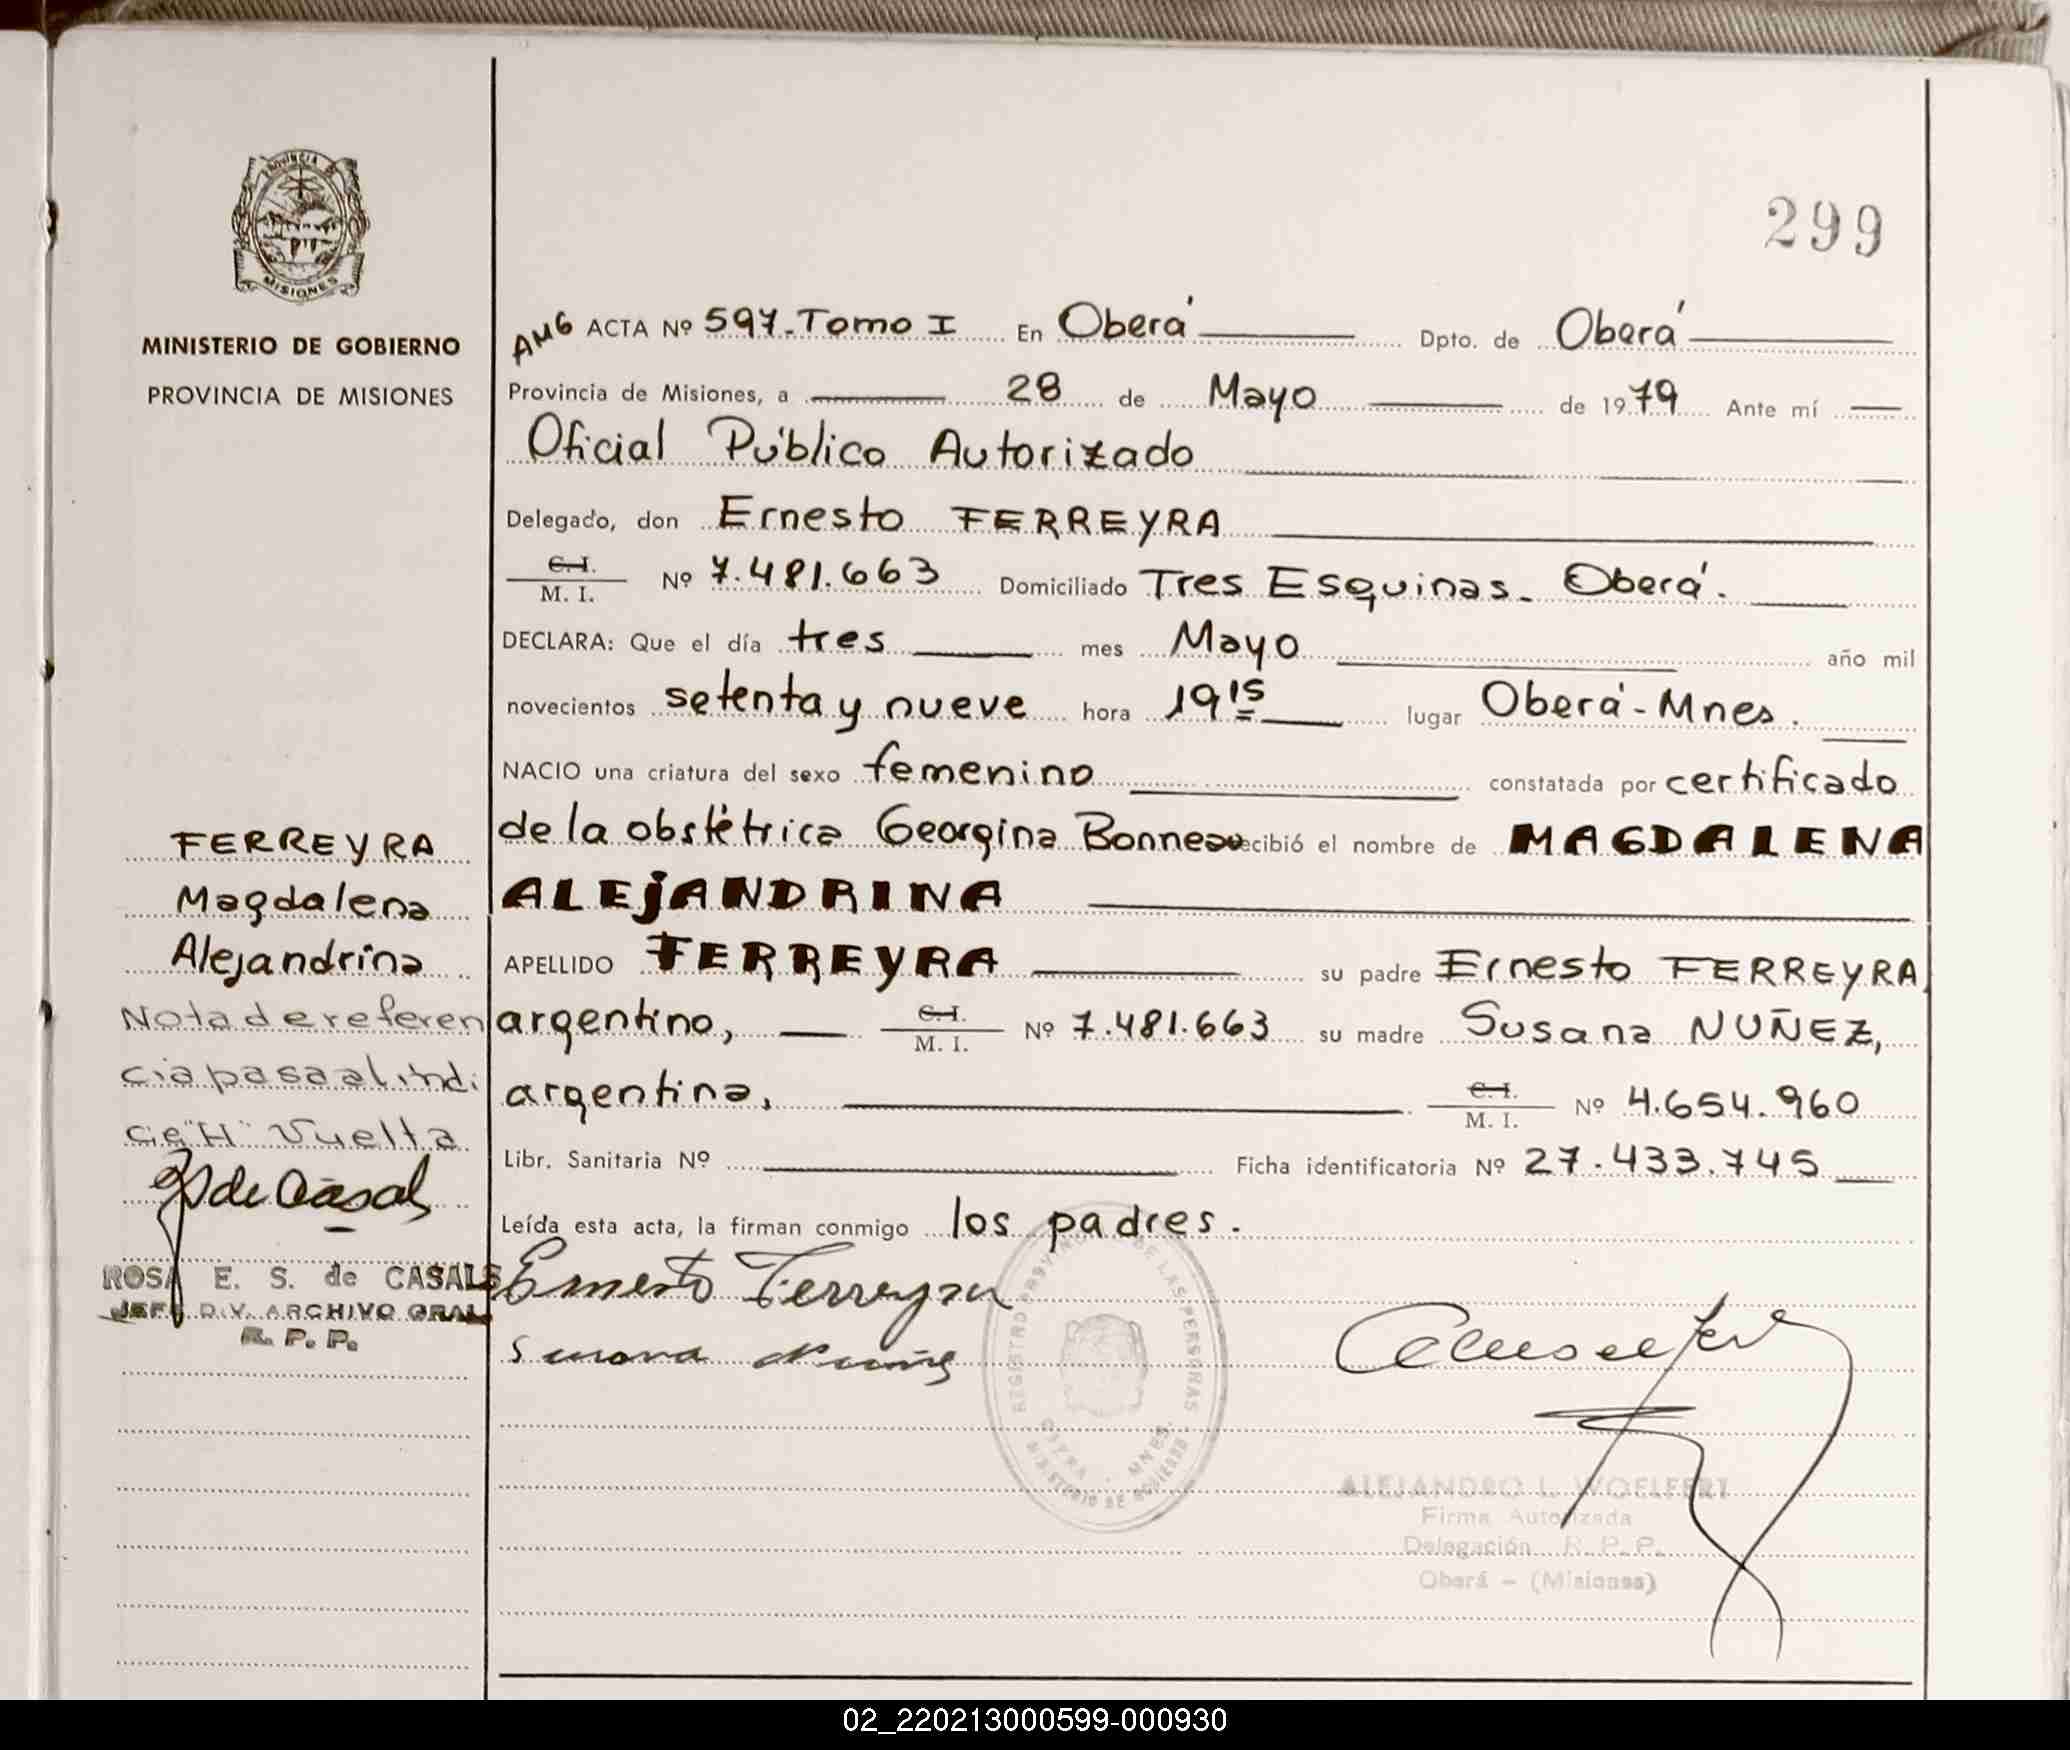 PROVINCIA DE
MISIONES
MINISTERIO DE GOBIERNO
PROVINCIA DE MISIONES
299
AMG ACTA Nº 597-Tomo I En Oberá Dpto. de Oberá
Provincia de Misiones, a 28 de Mayo de 1979 Ante mí
Oficial Público Autorizado
Delegado, don Ernesto FERREYRA
C.I.
M. I. Nº 7.481.663 Domiciliado Tres Esquinas- Oberá.
DECLARA: Que el día tres mes Mayo año mil
novecientos setenta y nueve hora 19 15 lugar Oberá-Mnes.
NACIO una criatura del sexo femenino constatada por certificado
de la obstétrica Georgina Bonneau recibió el nombre de MAGDALENA
ALEJANDRINA
APELLIDO FERREYRA su padre Ernesto FERREYRA,
argentino, C.I. M. I. Nº 7.481.663 su madre Susana NUÑEZ,
argentina, C.I. M. I. Nº 4.654.960
Libr. Sanitaria Nº Ficha identificatoria Nº 27.433.745
Leída esta acta, la firman conmigo los padres.
Ernesto Ferreyra
Susana Nuñez
FERREYRA
Magdalena
Alejandrina
Nota de referen
cia pasa al indi
ce "H" Vuelta
de Casals
ROSA E. S. de CASALS
JEFE DIV. ARCHIVO GRAL
R. P. P.
REGISTRO PROVINCIAL DE LAS PERSONAS
OBERA - MNES.
MINISTERIO DE GOBIERNO
ALEJANDRO L. WOELFERT
Firma Autorizada
Delegación R. P. P.
Oberá - (Misiones)
02_220213000599-000930